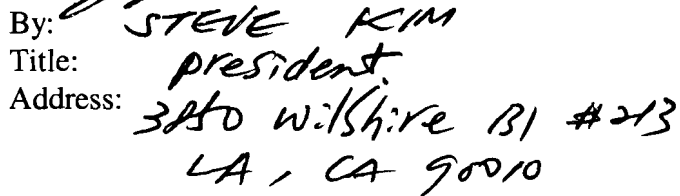 By: STEVE KIM
Title: president
Address: 3850 Wilshire Bl #213
LA, CA 90010